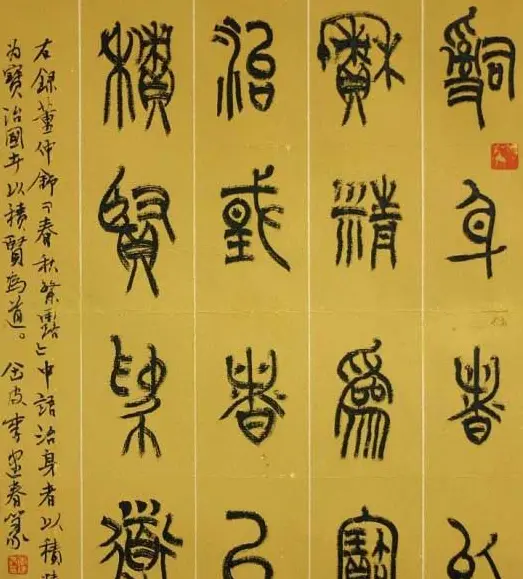 治身者以
積精為寶
治國者以
積賢為道
錄董仲舒春秋繁露中語治身者以積精
为寶治國者以積賢為道。春篆